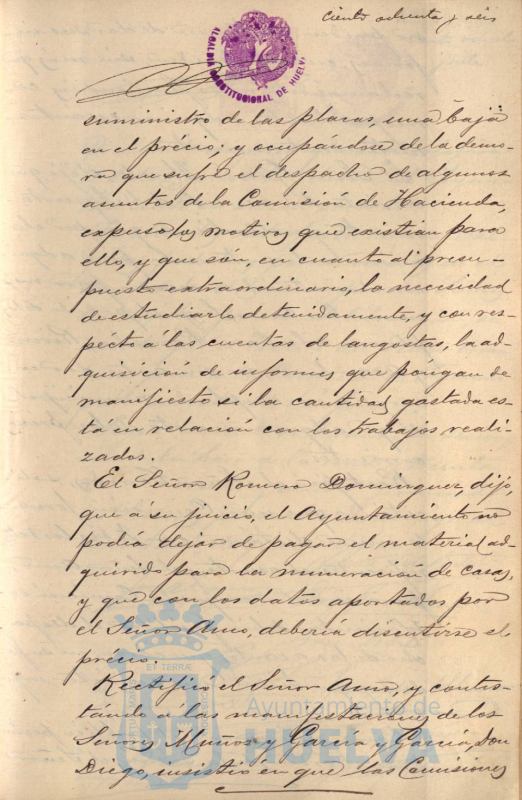 ciento ochenta y seis
ALCALDIA CONSTITUCIONAL DE HUELVA
suministro de las placas, una baja
en el précio; y ocupándose de la demo-
ra que sufre el despacho de algunos
asuntos de la Comisión de Hacienda,
expuso los motivos que existian para
ello, y que són, en cuanto al presu-
puesto extraordinario, la necesidad
de estudiarlo detenidamente, y con res-
pécto á las cuentas de langostas, la ad-
quisición de informes que póngan de
manifiesto si la cantidad gastada es-
tá en relación con los trabajos reali-
zados.
El Señor Romero Dominguez, dijo,
que á su juicio, el Ayuntamiento no
podia dejar de pagar el material ad-
quirido para la numeración de casas,
y que con los datos aportados por
el Señor Amo, deberia discutirse el
précio.
Rectificó el Señor Amo, y contes-
tándo á las manifestaciones de los
Señores Muñoz y García y García, Don
Diego, insistió en que las Comisiones
ET TERRÆ
Ayuntamiento de
HUELVA